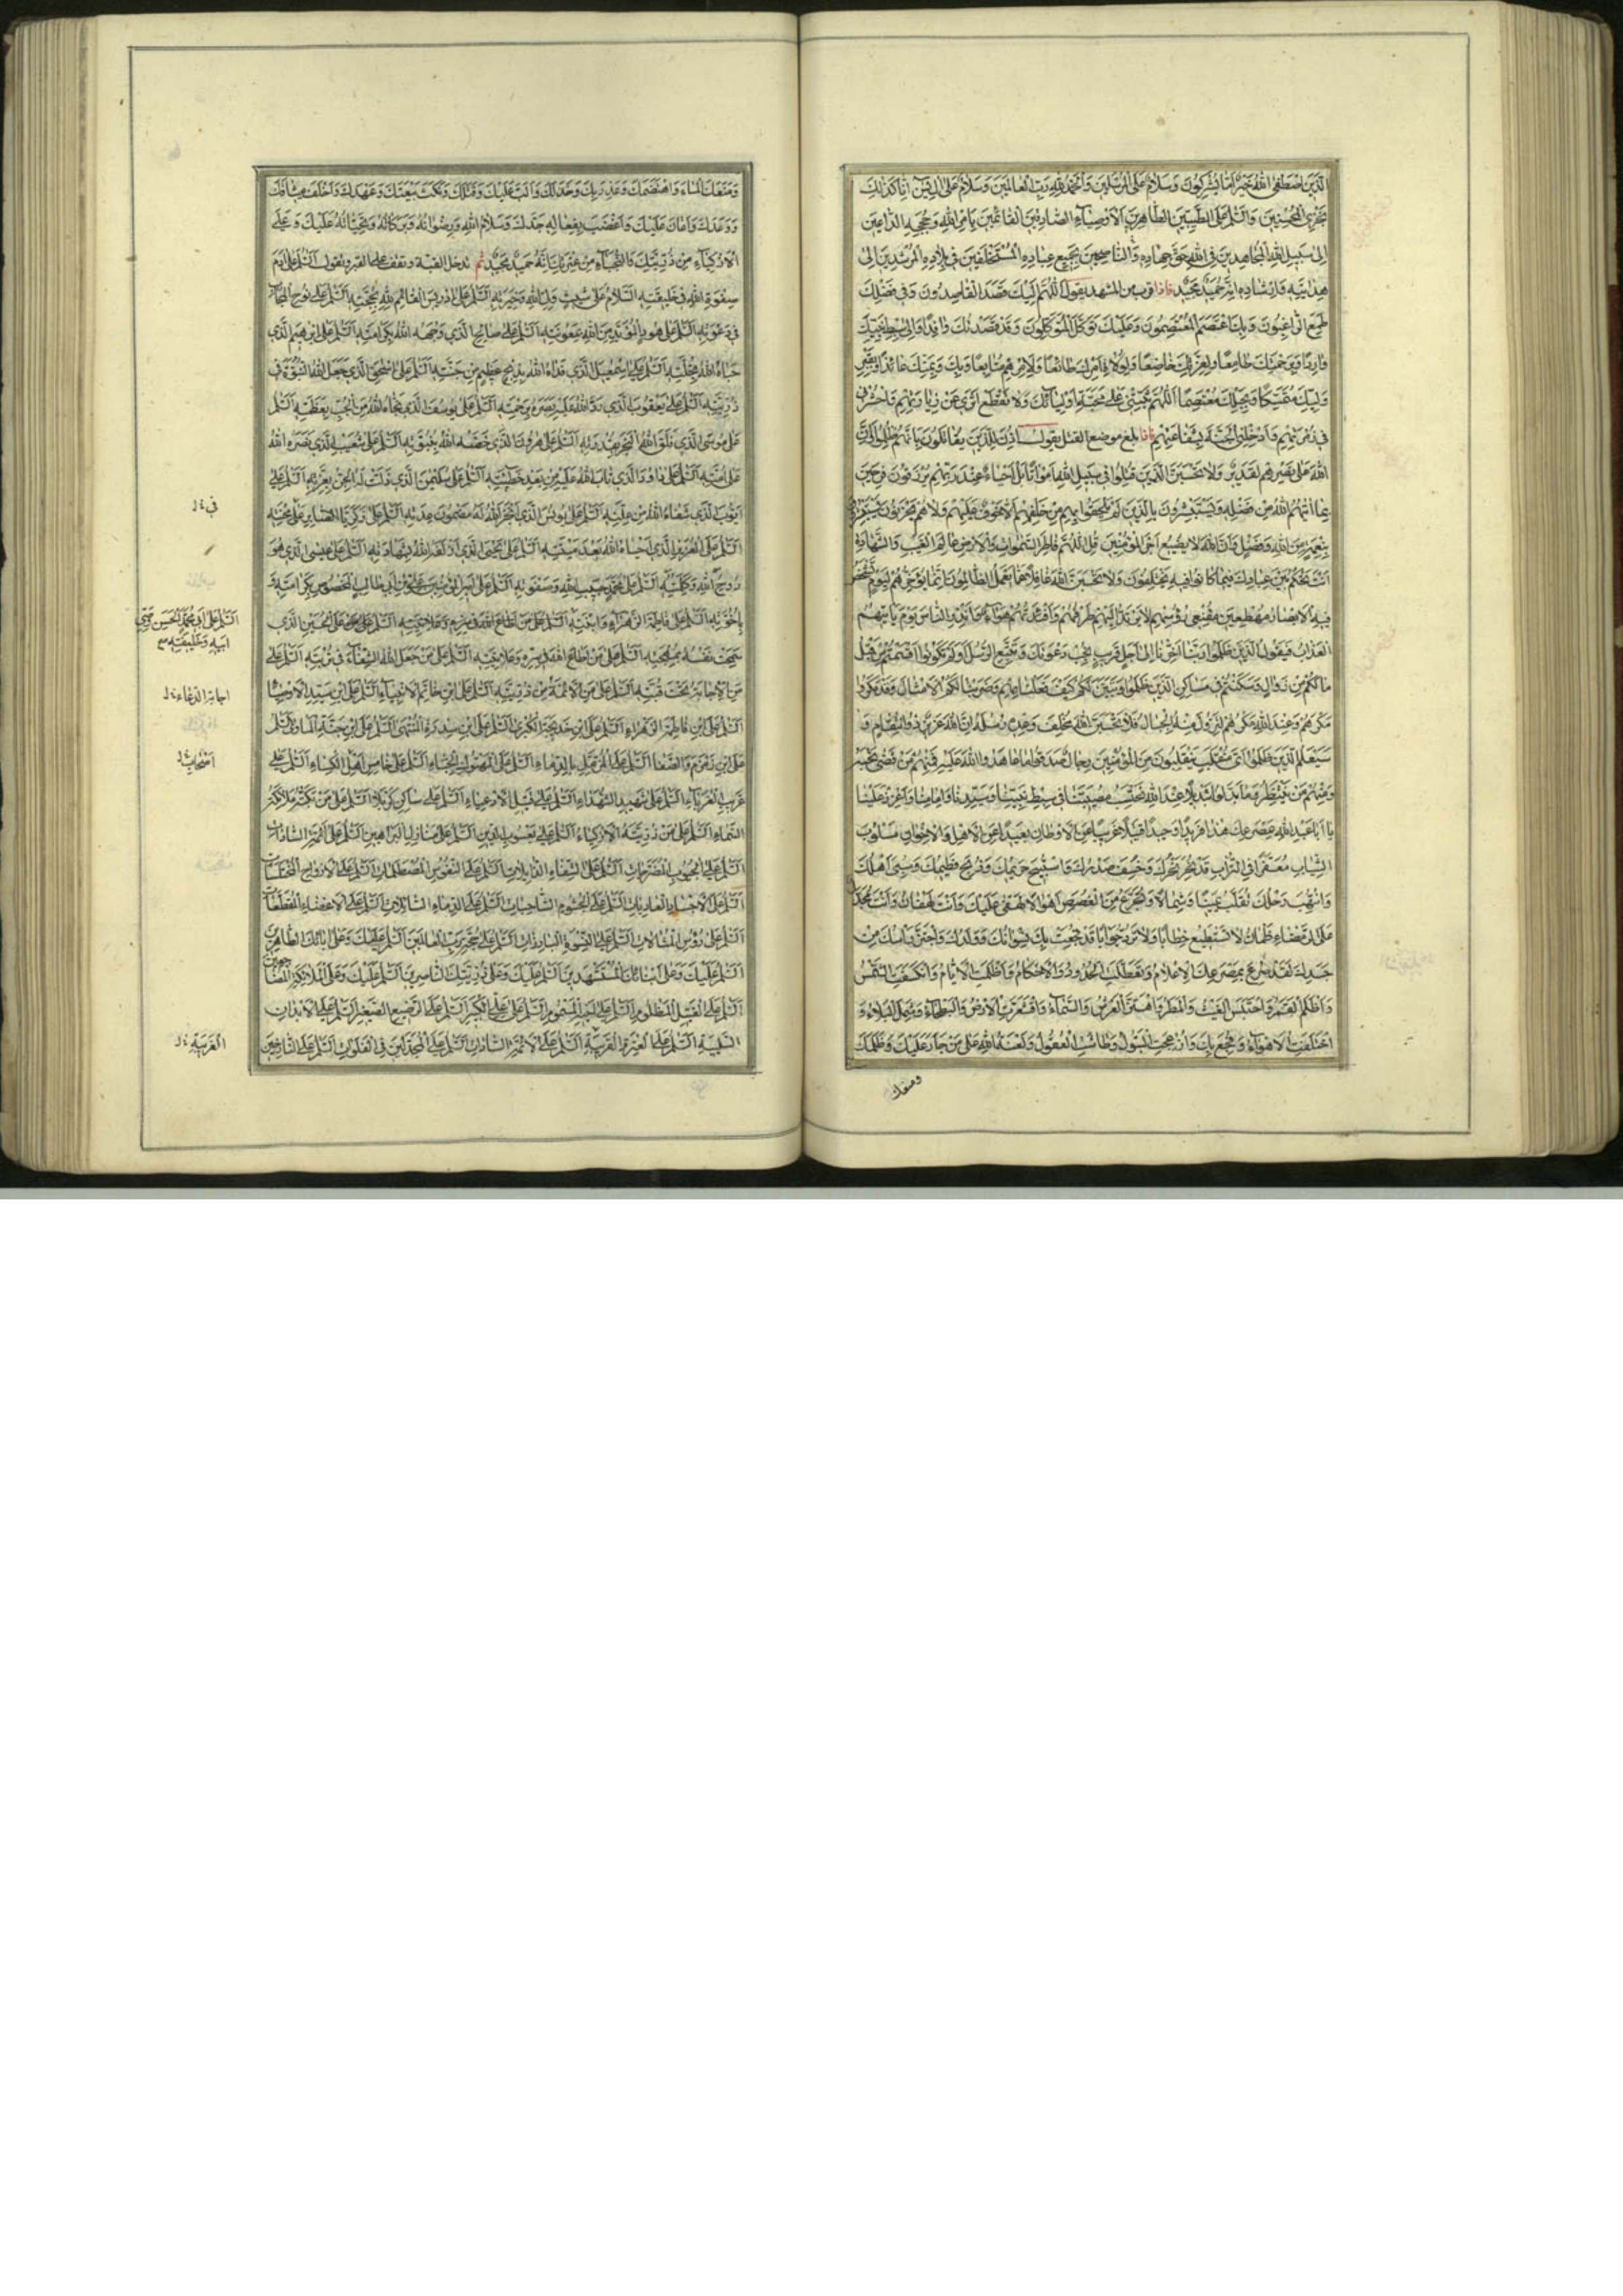 الَّذِينَ اصْطَفَى اللهُ خَيْرٌ أَمَّا يُشْرِكُونَ وَسَلَامٌ عَلَى الْمُرْسَلِينَ وَالْحَمْدُ لِلّهِ رَبِّ الْعَالَمِينَ وَسَلَامٌ عَلَى إِلْيَاسِينَ إِنَّا كَذَلِكَ
نَجْزِي الْمُحْسِنِينَ وَالسَّلَمُ عَلَى الطَّيِّبِينَ الطَّاهِرِينَ الْأَوْصِيَاءِ الصَّادِقِينَ الْقَائِمِينَ بِأَمْرِ اللهِ وَحُجَجِهِ الدَّاعِينَ
إِلَى سَبِيلِ اللهِ الْمُجَاهِدِينَ فِي اللهِ حَقَّ جِهَادِهِ وَالنَّاصِحِينَ لِجَمِيعِ عِبَادِهِ الْمُسْتَخْلَفِينَ فِي بِلَادِهِ الْمُرْشِدِينَ إِلَى
هِدَايَتِهِ وَإِرْشَادِهِ إِنَّهُ حَمِيدٌ مَجِيدٌ فاذا قرب من المشهد يقول اللّهُمَّ إِلَيْكَ قَصَدَ الْقَاصِدُونَ وَفِي فَضْلِكَ
طَمِعَ الرَّاغِبُونَ وَبِكَ اعْتَصَمَ الْمُعْتَصِمُونَ وَعَلَيْكَ تَوَكَّلَ الْمُتَوَكِّلُونَ وَقَدْ قَصَدْتُكَ وَافِدًا وَإِلَى سِبْطِ نَبِيِّكَ
وَارِدًا وَبِرَحْمَتِكَ طَامِعًا وَلِعِزَّتِكَ خَاضِعًا وَلِوُلَاةِ أَمْرِكَ طَائِعًا وَلِأَمْرِهِمْ مُتَابِعًا وَبِكَ وَبِمَنِّكَ عَائِذًا وَبِقَبْرِ
وَلِيِّكَ مُتَمَسِّكًا وَبِحَبْلِكَ مُعْتَصِمًا اللّهُمَّ ثَبِّتْنِي عَلَى مَحَبَّةِ أَوْلِيَائِكَ وَلَا تَقْطَعْ أَثَرِي عَنْ زِيَارَتِهِمْ وَاحْشُرْنِي
فِي زُمْرَتِهِمْ وَأَدْخِلْنِي الْجَنَّةَ بِشَفَاعَتِهِمْ فاذا بلغ موضع القتل يقول أُذِنَ لِلَّذِينَ يُقَاتَلُونَ بِأَنَّهُمْ ظُلِمُوا وَإِنَّ
اللهَ عَلَى نَصْرِهِمْ لَقَدِيرٌ وَلَا تَحْسَبَنَّ الَّذِينَ قُتِلُوا فِي سَبِيلِ اللهِ أَمْوَاتًا بَلْ أَحْيَاءٌ عِنْدَ رَبِّهِمْ يُرْزَقُونَ فَرِحِينَ
بِمَا آتَيهُمُ اللهُ مِنْ فَضْلِهِ وَيَسْتَبْشِرُونَ بِالَّذِينَ لَمْ يَلْحَقُوا بِهِمْ مِنْ خَلْفِهِمْ أَلَّا خَوْفٌ عَلَيْهِمْ وَلَا هُمْ يَحْزَنُونَ يَسْتَبْشِرُونَ
بِنِعْمَةٍ مِنَ اللهِ وَفَضْلٍ وَأَنَّ اللهَ لَا يُضِيعُ أَجْرَ الْمُؤْمِنِينَ قُلِ اللّهُمَّ فَاطِرَ السَّمَوَاتِ وَالْأَرْضِ عَالِمَ الْغَيْبِ وَالشَّهَادَةِ
أَنْتَ تَحْكُمُ بَيْنَ عِبَادِكَ فِيمَا كَانُوا فِيهِ يَخْتَلِفُونَ وَلَا تَحْسَبَنَّ اللهَ غَافِلًا عَمَّا يَعْمَلُ الظَّالِمُونَ إِنَّمَا يُؤَخِّرُهُمْ لِيَوْمٍ تَشْخَصُ
فِيهِ الْأَبْصَارُ مُهْطِعِينَ مُقْنِعِي رُؤُسِهِمْ لَا يَرْتَدُّ إِلَيْهِمْ طَرْفُهُمْ وَأَفْئِدَتُهُمْ هَوَاءٌ وَأَنْذِرِ النَّاسَ يَوْمَ يَأْتِيهِمُ
الْعَذَابُ فَيَقُولُ الَّذِينَ ظَلَمُوا رَبَّنَا أَخِّرْنَا إِلَى أَجَلٍ قَرِيبٍ نُجِبْ دَعْوَتَكَ وَنَتَّبِعِ الرُّسُلَ أَوَلَمْ تَكُونُوا أَقْسَمْتُمْ مِنْ قَبْلُ
مَا لَكُمْ مِنْ زَوَالٍ وَسَكَنْتُمْ فِي مَسَاكِنِ الَّذِينَ ظَلَمُوا وَتَبَيَّنَ لَكُمْ كَيْفَ فَعَلْنَا بِهِمْ وَضَرَبْنَا لَكُمُ الْأَمْثَالَ وَقَدْ مَكَرُوا
مَكْرَهُمْ وَعِنْدَ اللهِ مَكْرُهُمْ لِتَزُولَ مِنْهُ الْجِبَالُ فَلَا تَحْسَبَنَّ اللهَ مُخْلِفَ وَعْدِهِ رُسُلَهُ إِنَّ اللهَ عَزِيزٌ ذُو انْتِقَامٍ وَ
سَيَعْلَمُ الَّذِينَ ظَلَمُوا أَيَّ مُنْقَلَبٍ يَنْقَلِبُونَ مِنَ الْمُؤْمِنِينَ رِجَالٌ صَدَقُوا مَا عَاهَدُوا اللهَ عَلَيْهِ فَمِنْهُمْ مَنْ قَضَى نَحْبَهُ
وَمِنْهُمْ مَنْ يَنْتَظِرُ وَمَا بَدَّلُوا تَبْدِيلًا عِنْدَ اللهِ نَحْتَسِبُ مُصِيبَتَنَا فِي سِبْطِ نَبِيِّنَا وَسَيِّدِنَا وَإِمَامِنَا وَأَعْزِزْ عَلَيْنَا
يَا أَبَا عَبْدِ اللهِ بِمَصْرَعِكَ هَذَا فَرِيدًا وَحِيدًا قَتِيلًا غَرِيبًا عَنِ الْأَوْطَانِ بَعِيدًا عَنِ الْأَهْلِ وَالْإِخْوَانِ مَسْلُوبَ
الثِّيَابِ مُعَفَّرًا فِي التُّرَابِ قَدْ نُحِرَ نَحْرُكَ وَخُسِفَ صَدْرُكَ وَاسْتُبِيحَ حَرِيمُكَ وَذُبِحَ فَطِيمُكَ وَسُبِيَ أَهْلُكَ
وَانْتُهِبَ رَحْلُكَ تُقَلَّبُ يَمِينًا وَشِمَالًا وَتُجَرَّعُ مِنَ الْغُصَصِ أَهْوَالًا لَهَفِي عَلَيْكَ وَأَنْتَ لَهْفَانُ وَأَنْتَ مُجَدَّلٌ
عَلَى الرَّمْضَاءِ ظَمْآنُ لَا تَسْتَطِيعُ خِطَابًا وَلَا تَرُدُّ جَوَابًا قَدْ فُجِعَتْ بِكَ نِسْوَانُكَ وَوُلْدُكَ وَاحْتُزَّ رَأْسُكَ مِنْ
جَسَدِكَ لَقَدْ صُرِعَ بِمَصْرَعِكَ الْإِسْلَامُ وَتَعَطَّلَتِ الْحُدُودُ وَالْأَحْكَامُ وَأَظْلَمَتِ الْأَيَّامُ وَانْكَسَفَتِ الشَّمْسُ
وَأَظْلَمَ الْقَمَرُ وَاحْتَبَسَ الْغَيْثُ وَالْمَطَرُ وَاهْتَزَّ الْعَرْشُ وَالسَّمَاءُ وَاقْشَعَرَّتِ الْأَرْضُ وَالْبَطْحَاءُ وَشَمِلَ الْبَلَاءُ وَ
اخْتَلَفَتِ الْأَهْوَاءُ وَفُجِعَ بِكَ الرَّسُولُ وَأُزْعِجَتِ الْبَتُولُ وَطَاشَتِ الْعُقُولُ وَلَعْنَةُ اللهِ عَلَى مَنْ جَارَ عَلَيْكَ وَظَلَمَكَ
ومنعك
وَمَنَعَكَ الْمَاءَ وَاهْتَضَمَكَ وَغَدَرَ بِكَ وَخَذَلَكَ وَأَلَّبَ عَلَيْكَ وَقَتَلَكَ وَنَكَثَ بَيْعَتَكَ وَعَهْدَكَ وَأَخْلَفَ مِيثَاقَكَ
وَوَعْدَكَ وَأَعَانَ عَلَيْكَ وَأَغْضَبَ بِفِعَالِهِ جَدَّكَ وَسَلَامُ اللهِ وَرِضْوَانُهُ وَبَرَكَاتُهُ وَتَحِيَّاتُهُ عَلَيْكَ وَعَلَى
الْأَزْكِيَاءِ مِنْ ذُرِّيَّتِكَ وَالنُّجَبَاءِ مِنْ عِتْرَتِكَ إِنَّهُ حَمِيدٌ مَجِيدٌ ثم تدخل القبة وتقف على القبر وتقول السَّلَمُ عَلَى آدَمَ
صِفْوَةِ اللهِ فِي خَلِيقَتِهِ السَّلَامُ عَلَى شَيْثٍ وَلِيِّ اللهِ وَخِيَرَتِهِ السَّلَمُ عَلَى إِدْرِيسَ الْقَائِمِ لِلّهِ بِحُجَّتِهِ السَّلَمُ عَلَى نُوحٍ الْمُجَابِ
فِي دَعْوَتِهِ السَّلَمُ عَلَى هُودٍ الْمُؤَيَّدِ مِنَ اللهِ بِمَعُونَتِهِ السَّلَمُ عَلَى صَالِحٍ الَّذِي وَجَّهَهُ اللهُ بِكَرَامَتِهِ السَّلَمُ عَلَى إِبْرَهِيمَ الَّذِي
حَبَاهُ اللهُ بِخُلَّتِهِ السَّلَمُ عَلَى إِسْمَعِيلَ الَّذِي فَدَاهُ اللهُ بِذِبْحٍ عَظِيمٍ مِنْ جَنَّتِهِ السَّلَمُ عَلَى إِسْحَقَ الَّذِي جَعَلَ اللهُ النُّبُوَّةَ فِي
ذُرِّيَّتِهِ السَّلَمُ عَلَى يَعْقُوبَ الَّذِي رَدَّ اللهُ عَلَيْهِ بَصَرَهُ بِرَحْمَتِهِ السَّلَمُ عَلَى يُوسُفَ الَّذِي نَجَّاهُ اللهُ مِنَ الْجُبِّ بِعَظَمَتِهِ السَّلَمُ
عَلَى مُوسَى الَّذِي فَلَقَ اللهُ الْبَحْرَ لَهُ بِقُدْرَتِهِ السَّلَمُ عَلَى هَرُونَ الَّذِي خَصَّهُ اللهُ بِنُبُوَّتِهِ السَّلَمُ عَلَى شُعَيْبٍ الَّذِي نَصَرَهُ اللهُ
عَلَى أُمَّتِهِ السَّلَمُ عَلَى دَاوُدَ الَّذِي تَابَ اللهُ عَلَيْهِ مِنْ بَعْدِ خَطِيئَتِهِ السَّلَمُ عَلَى سُلَيْمَنَ الَّذِي ذَلَّتْ لَهُ الْجِنُّ بِعِزَّتِهِ السَّلَمُ عَلَى
أَيُّوبَ الَّذِي شَفَاهُ اللهُ مِنْ عِلَّتِهِ السَّلَمُ عَلَى يُونُسَ الَّذِي أَنْجَزَ اللهُ لَهُ مَضْمُونَ عِدَتِهِ السَّلَمُ عَلَى زَكَرِيَّا الصَّابِرِ عَلَى مِحْنَتِهِ
السَّلَمُ عَلَى الْعُزَيْرِ الَّذِي أَحْيَاهُ اللهُ بَعْدَ مِيتَتِهِ السَّلَمُ عَلَى يَحْيَى الَّذِي أَزْلَفَهُ اللهُ بِشَهَادَتِهِ السَّلَمُ عَلَى عِيسَى الَّذِي هُوَ
رُوحُ اللهِ وَكَلِمَتُهُ السَّلَمُ عَلَى مُحَمَّدٍ حَبِيبِ اللهِ وَصَفْوَتِهِ السَّلَمُ عَلَى أَمِيرِ الْمُؤْمِنِينَ عَلِيِّ بْنِ أَبِي طَالِبٍ الْمَخْصُوصِ بِكَرَامَتِهِ وَ
بِأُخُوَّتِهِ السَّلَمُ عَلَى فَاطِمَةَ الزَّهْرَاءِ ابْنَتِهِ السَّلَمُ عَلَى مَنْ أَطَاعَ اللهَ فِي سِرِّهِ وَعَلَانِيَتِهِ السَّلَمُ عَلَى الْحُسَيْنِ الَّذِي
سَمَحَتْ نَفْسُهُ بِمُهْجَتِهِ السَّلَمُ عَلَى مَنْ أَطَاعَ اللهَ فِي سِرِّهِ وَعَلَانِيَتِهِ السَّلَمُ عَلَى مَنْ جَعَلَ اللهُ الشِّفَاءَ فِي تُرْبَتِهِ السَّلَمُ عَلَى
مَنِ الْإِجَابَةُ تَحْتَ قُبَّتِهِ السَّلَمُ عَلَى مَنِ الْأَئِمَّةُ مِنْ ذُرِّيَّتِهِ السَّلَمُ عَلَى ابْنِ خَاتَمِ الْأَنْبِيَاءِ السَّلَمُ عَلَى ابْنِ سَيِّدِ الْأَوْصِيَاءِ
السَّلَمُ عَلَى ابْنِ فَاطِمَةَ الزَّهْرَاءِ السَّلَمُ عَلَى ابْنِ خَدِيجَةَ الْكُبْرَى السَّلَمُ عَلَى ابْنِ سِدْرَةِ الْمُنْتَهَى السَّلَمُ عَلَى ابْنِ جَنَّةِ الْمَأْوَى السَّلَمُ
عَلَى ابْنِ زَمْزَمَ وَالصَّفَا السَّلَمُ عَلَى الْمُرَمَّلِ بِالدِّمَاءِ السَّلَمُ عَلَى الْمَهْتُوكِ الْخِبَاءِ السَّلَمُ عَلَى خَامِسِ أَهْلِ الْكِسَاءِ السَّلَمُ عَلَى
غَرِيبِ الْغُرَبَاءِ السَّلَمُ عَلَى شَهِيدِ الشُّهَدَاءِ السَّلَمُ عَلَى قَتِيلِ الْأَدْعِيَاءِ السَّلَمُ عَلَى سَاكِنِ كَرْبَلَاءَ السَّلَمُ عَلَى مَنْ بَكَتْهُ مَلَائِكَةُ
السَّمَاءِ السَّلَمُ عَلَى مَنْ ذُرِّيَّتُهُ الْأَزْكِيَاءُ السَّلَمُ عَلَى يَعْسُوبِ الدِّينِ السَّلَمُ عَلَى مَنَازِلِ الْبَرَاهِينِ السَّلَمُ عَلَى الْأَئِمَّةِ السَّادَاتِ
السَّلَمُ عَلَى الْجُيُوبِ الْمُضَرَّجَاتِ السَّلَمُ عَلَى الشِّفَاهِ الذَّابِلَاتِ السَّلَمُ عَلَى النُّفُوسِ الْمُصْطَلَمَاتِ السَّلَمُ عَلَى الْأَرْوَاحِ الْمُخْتَلَسَاتِ
السَّلَمُ عَلَى الْأَجْسَادِ الْعَارِيَاتِ السَّلَمُ عَلَى الْجُسُومِ الشَّاحِبَاتِ السَّلَمُ عَلَى الدِّمَاءِ السَّائِلَاتِ السَّلَمُ عَلَى الْأَعْضَاءِ الْمُقَطَّعَاتِ
السَّلَمُ عَلَى الرُّؤُسِ الْمُشَالَاتِ السَّلَمُ عَلَى النِّسْوَةِ الْبَارِزَاتِ السَّلَمُ عَلَى حُجَّةِ رَبِّ الْعَالَمِينَ السَّلَمُ عَلَيْكَ وَعَلَى آبَائِكَ الطَّاهِرِينَ
السَّلَمُ عَلَيْكَ وَعَلَى أَبْنَائِكَ الْمُسْتَشْهَدِينَ السَّلَمُ عَلَيْكَ وَعَلَى ذُرِّيَّتِكَ النَّاصِرِينَ السَّلَمُ عَلَيْكَ وَعَلَى الْمَلَائِكَةِ الْمُضَاجِعِينَ
السَّلَمُ عَلَى الْقَتِيلِ الْمَظْلُومِ السَّلَمُ عَلَى أَخِيهِ الْمَسْمُومِ السَّلَمُ عَلَى عَلِيٍّ الْكَبِيرِ السَّلَمُ عَلَى الرَّضِيعِ الصَّغِيرِ السَّلَمُ عَلَى الْأَبْدَانِ
السَّلِيبَةِ السَّلَمُ عَلَى الْعِتْرَةِ الْقَرِيبَةِ السَّلَمُ عَلَى الْأَئِمَّةِ السَّادَاتِ السَّلَمُ عَلَى الْمُجَدَّلِينَ فِي الْفَلَوَاتِ السَّلَمُ عَلَى النَّازِحِينَ
السَّلَمُ عَلَى أَبِي مُحَمَّدٍ الْحَسَنِ وَصِيِّ
أبيه وخليفته